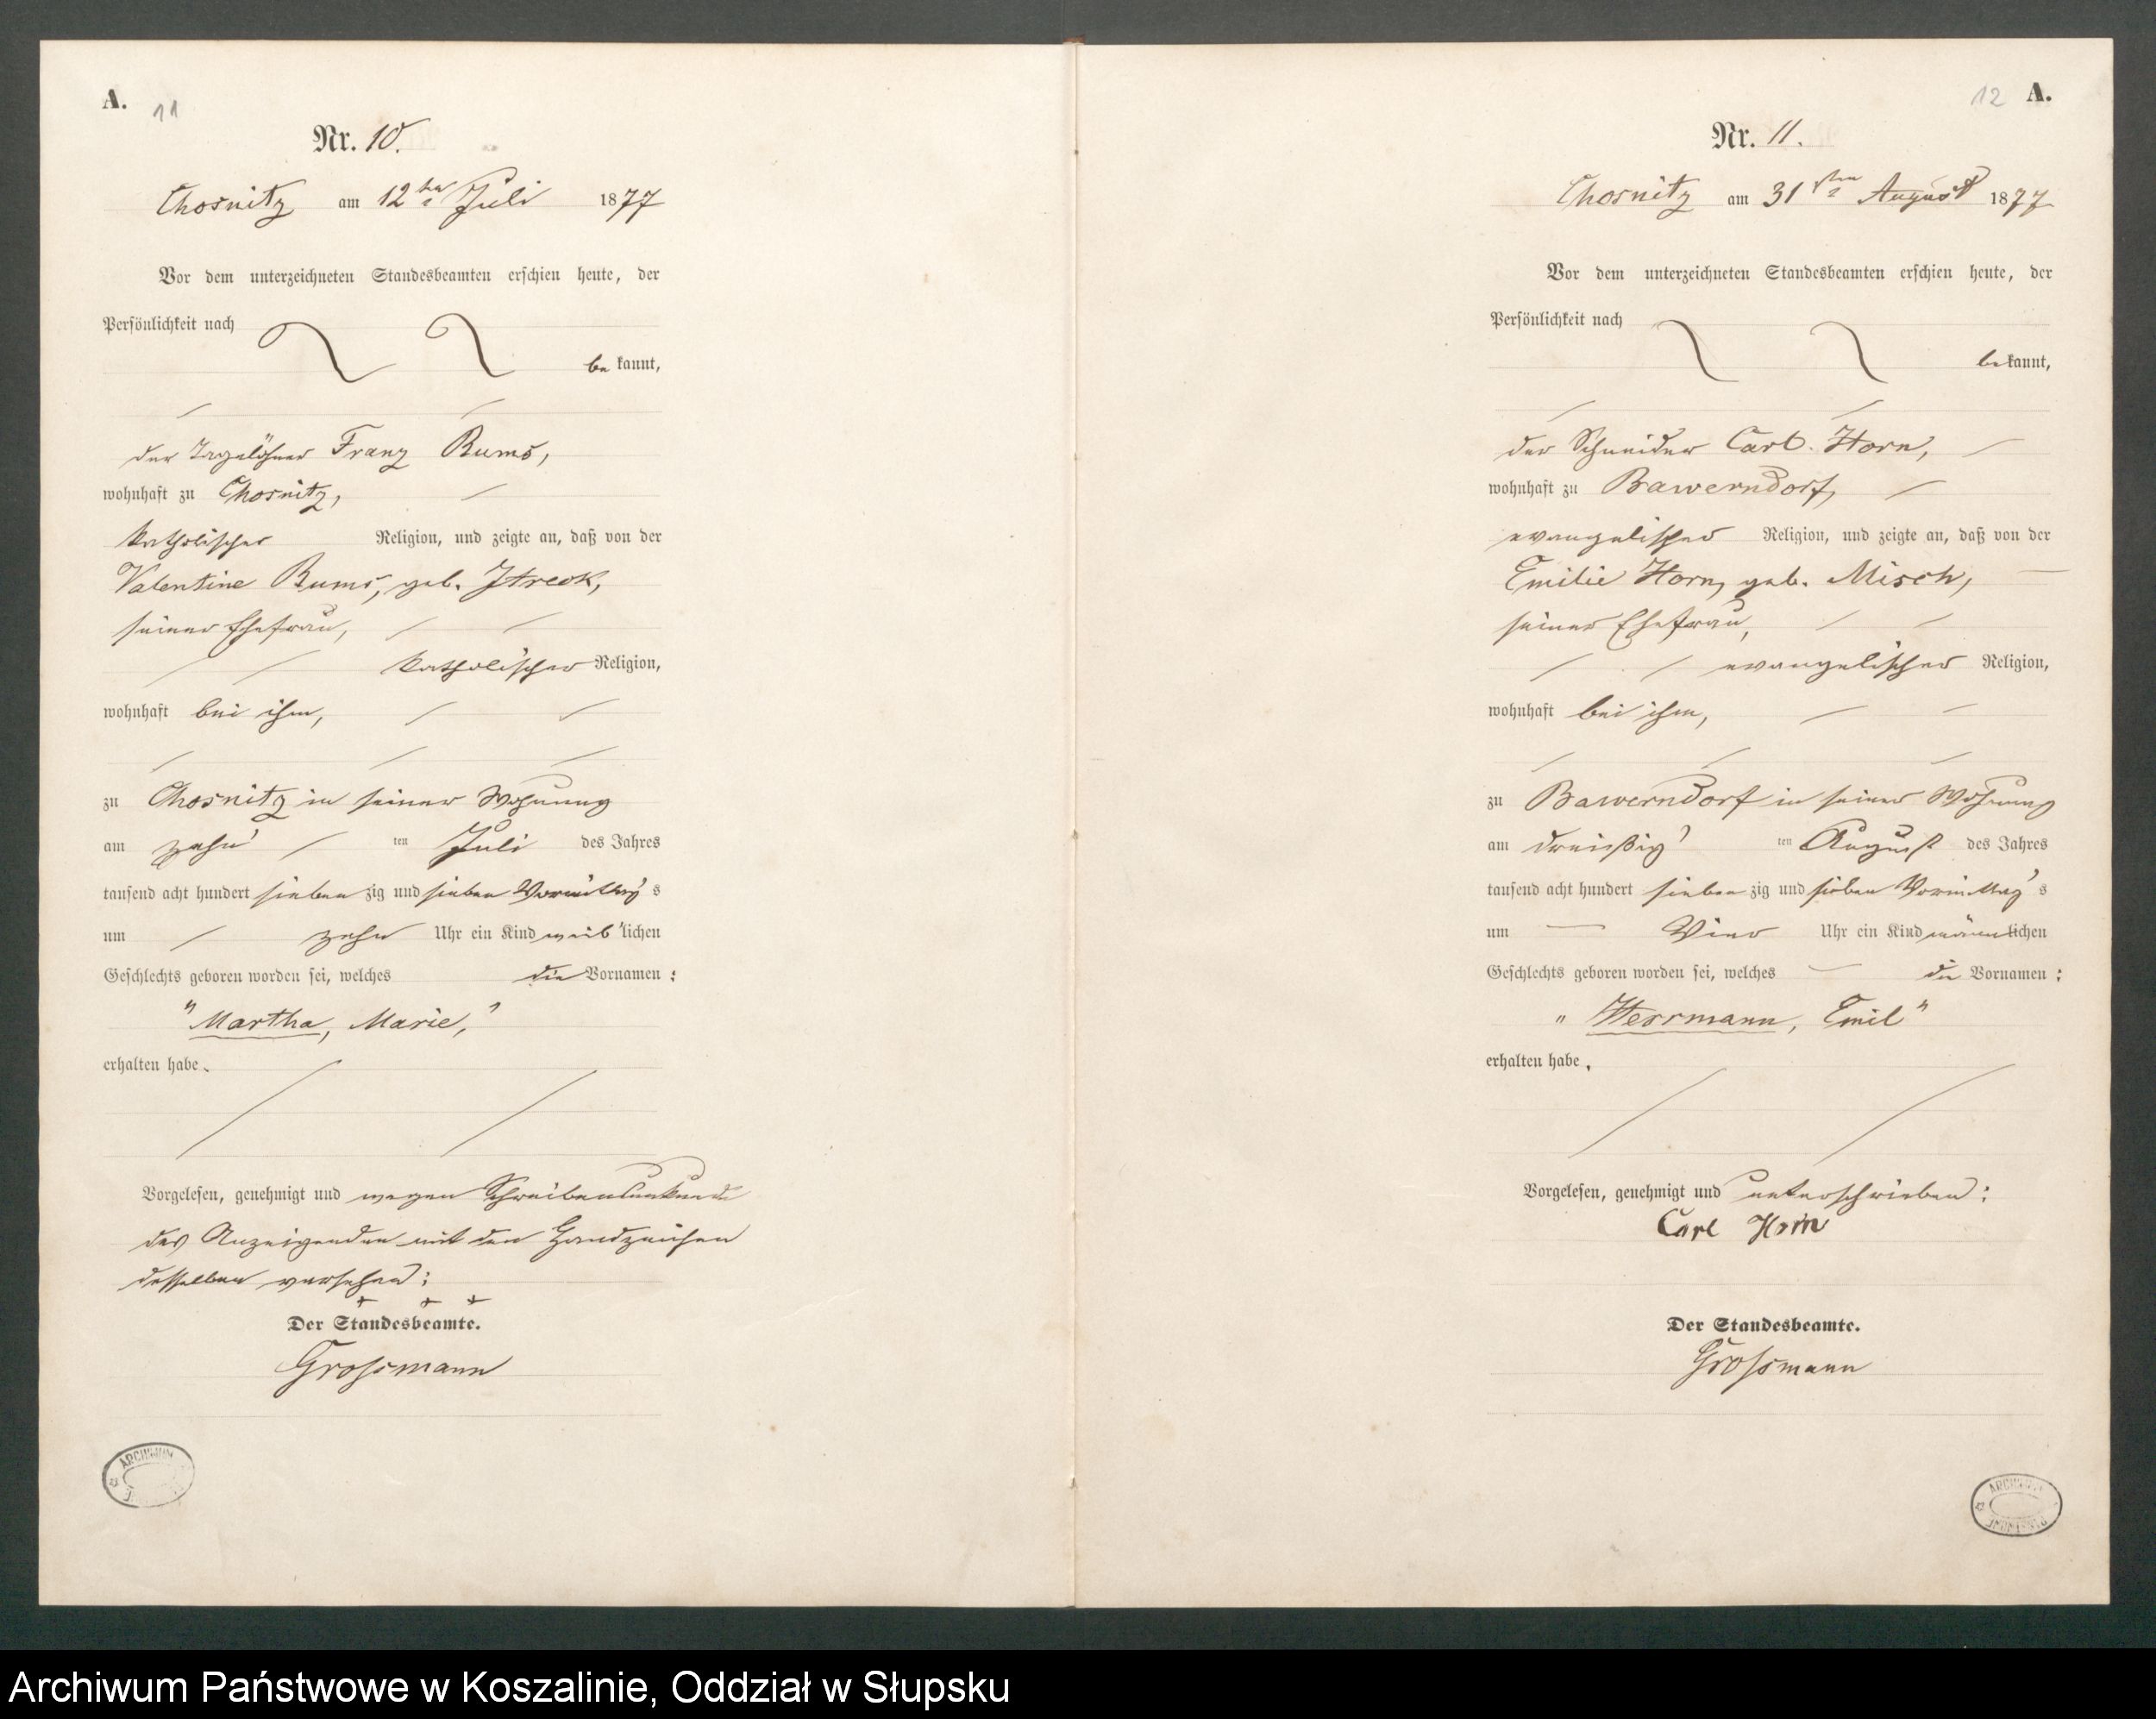 A.
11
Nr. 10.
Chosnitz am 12ten Juli 1877
Vor dem unterzeichneten Standesbeamten erschien heute, der
Persönlichkeit nach
bekannt,
der Tagelöhner Franz Bums,
wohnhaft zu Chosnitz,
katholischer Religion, und zeigte an, daß von der
Valentine Bums, geb.
seiner Ehefrau,
katholischer Religion,
wohnhaft bei ihm,
zu Chosnitz in seiner Wohnung
am zehn ten Juli des Jahres
tausend acht hundert sieben zig und sieben Vormittags
um zehn Uhr ein Kind weiblichen
Geschlechts geboren worden sei, welches die Vornamen:
"Martha, Marie,"
erhalten habe.
Vorgelesen, genehmigt und wegen Schreibensunkunde
des Anzeigenden mit den Handzeichen
desselben versehen:
+ + +
Der Standesbeamte.
Grossmann
ARCHIWUM
12
A.
Nr. 11.
Chosnitz am 31sten August 1877
Vor dem unterzeichneten Standesbeamten erschien heute, der
Persönlichkeit nach
bekannt,
der Schneider Carl Horn,
wohnhaft zu Bawerndorf,
evangelischer Religion, und zeigte an, daß von der
Emilie Horn, geb. Misch,
seiner Ehefrau,
evangelischer Religion,
wohnhaft bei ihm,
zu Bawerndorf in seiner Wohnung
am dreißig ten August des Jahres
tausend acht hundert sieben zig und sieben Vormittags
um Vier Uhr ein Kind männlichen
Geschlechts geboren worden sei, welches die Vornamen:
"Herrmann, Emil"
erhalten habe.
Vorgelesen, genehmigt und unterschrieben:
Carl Horn
Der Standesbeamte.
Grossmann
Archiwum Państwowe w Koszalinie, Oddział w Słupsku